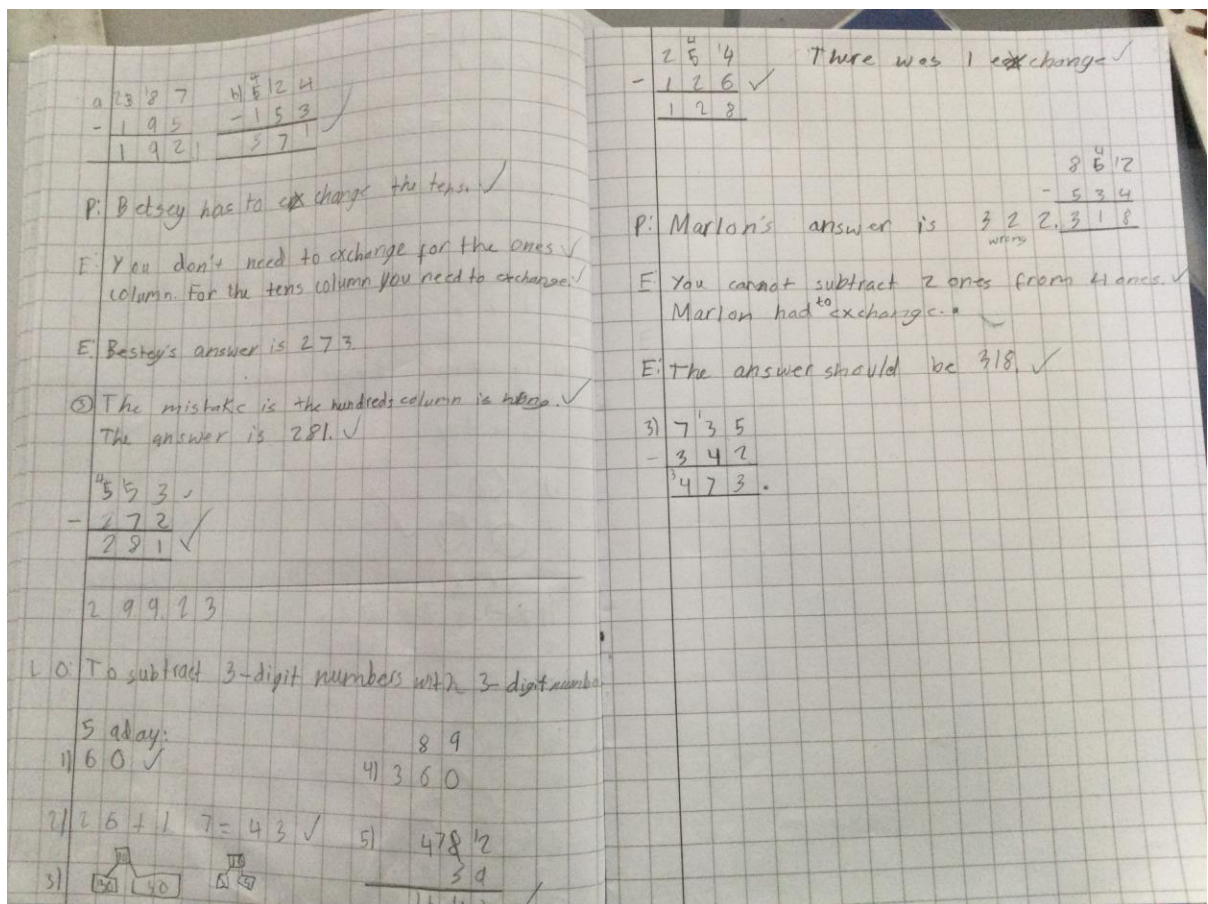 a 23 '8 7 b) 4 5 '2 4
- 1 9 5 - 1 5 3
1 9 2 3 7 1
P: Betsey has to exchange the tens.
E: You don't need to exchange for the ones
column. For the tens column you need to exchange.
E: Bestey's answer is 273.
⑤ The mistake is the hundreds column is
The answer is 281.
4 5 5 3
- 2 7 2
2 8 1
29.9.23
L O: To subtract 3-digit numbers with 3-digit
5 aday:
1) 6 0
2) 2 6 + 1 7 = 4 3
3) 30 40
8 9
4) 3 6 0
5) 4 7 8 '2
3 9
4
2 5 '4 There was 1 exchange
- 1 2 6
1 2 8
4
8 5 '2
- 5 3 4
3 1 8
P: Marlon's answer is 3 2 2.
wrong
E: You cannot subtract 2 ones from 4 ones.
Marlon had to exchange.
E: The answer should be 318
3) 7 '3 5
- 3 4 2
3 4 7 3 .